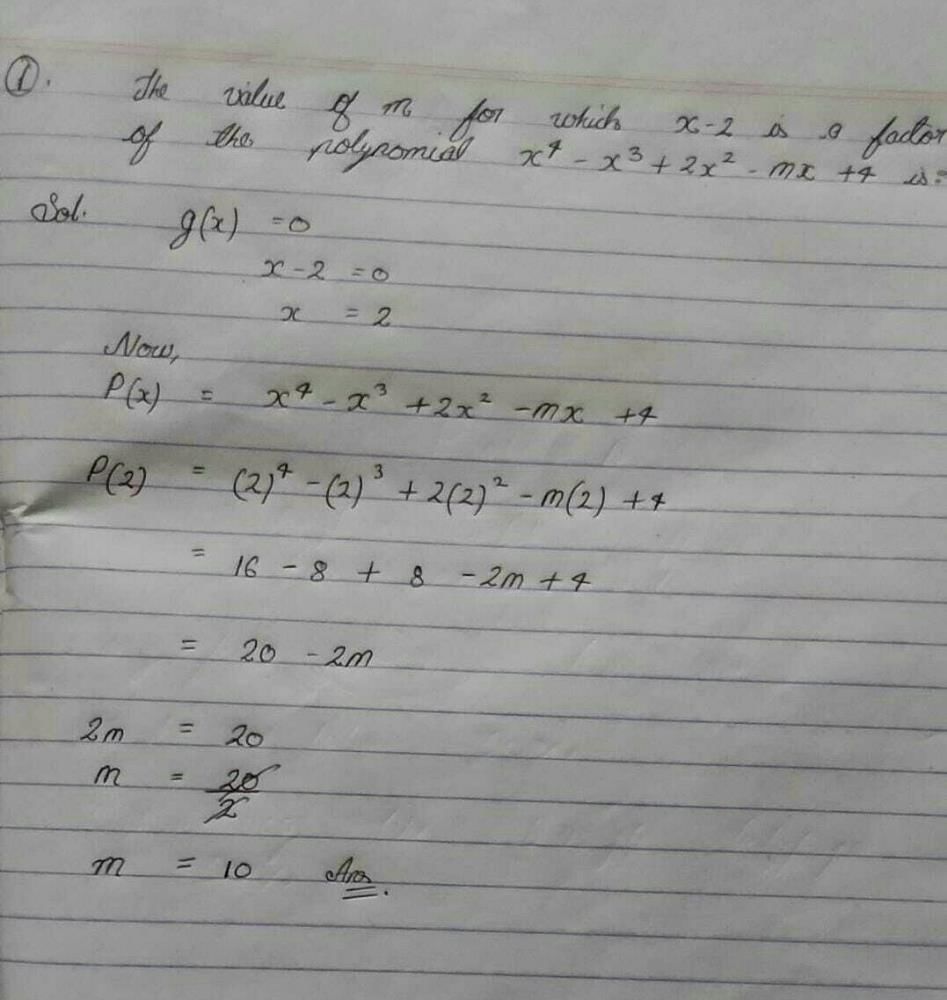 ①. The value of m for which x-2 is a factor
of the polynomial x⁴ - x³ + 2x² - mx + 4 is:
Sol. g(x) = 0
x - 2 = 0
x = 2
Now,
P(x) = x⁴ - x³ + 2x² - mx + 4
P(2) = (2)⁴ - (2)³ + 2(2)² - m(2) + 4
= 16 - 8 + 8 - 2m + 4
= 20 - 2m
2m = 20
m = 20
2
m = 10 Ans.